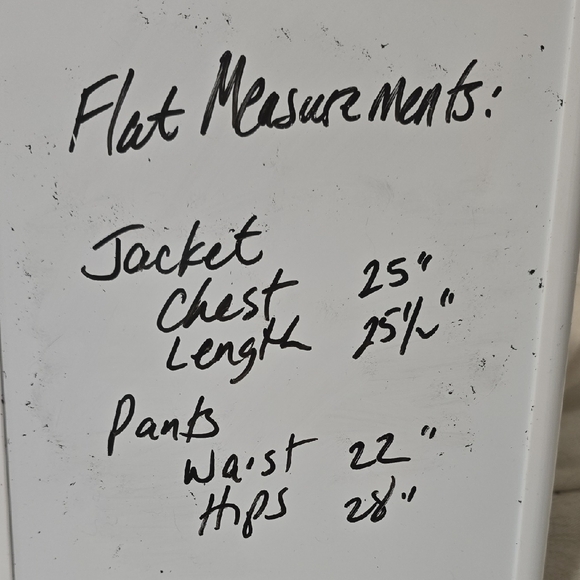 Flat Measurements:
Jacket
Chest 25"
Length 25½"
Pants
Waist 22"
Hips 28"